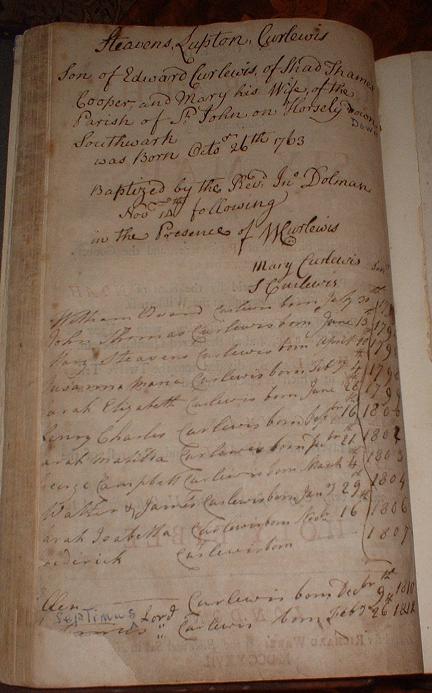 Steavens, Lupton, Curlewis
Son of Edward Curlewis, of Shad Thames
Cooper, and Mary his Wife, of the
Parish of St. John on Horsely down
Down
Southwark
was Born Octor 26th 1763
Baptized by the Revd. Jno. Dolman
Novr following
in the Presence of W Curlewis
Mary Curlewis Senr
S Curlewis
William Edward Curlewis born July 30
John Thomas Curlewis born June 13th 179
Mary Steavens Curlewis born April 10 179
Susanna Maria Curlewis born Feby 4 179
arah Elizabeth Curlewis born June 26 179
Henry Charles Curlewis born Septr 16 1800
arah Matilda Curlewis born 21 1802
eorge Campbell Curlewis born March 4 1803
Walter & James Curlewis born Jany 29 1804
arah Isabella Curlewis born Octr 16 1806
rederick Curlewis born 1807
Curlewis born Decbr 9th 1810
Septimus Lord Curlewis born Feby 26 1812
RICHARD WARE